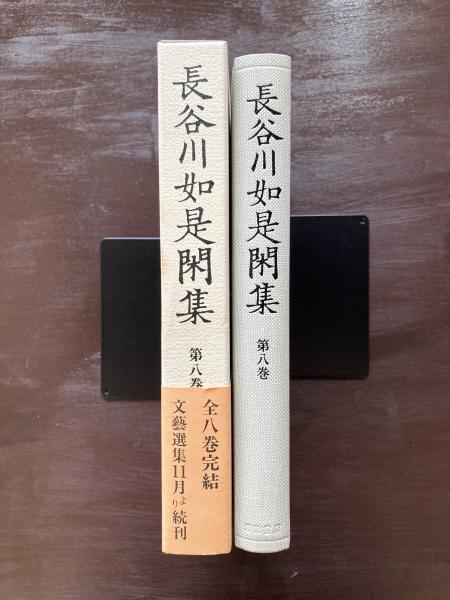 長谷川如是閑集
第八巻
全八巻完結
文藝選集11月より続刊
長谷川如是閑集
第八巻